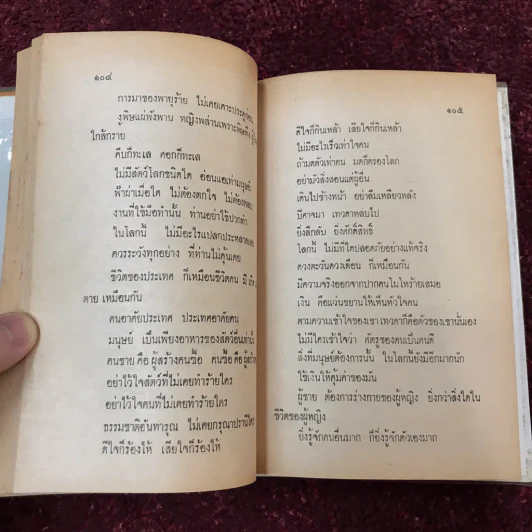 ๑๐๔
การมาของพายุร้าย ไม่เคยเคาะประตู
งูพิษแผ่พังพาน หญิงพล่านเพราะพิษหึง
ใกล้กราย
คืบก็ทะเล ศอกก็ทะเล
ไม่มีสัตว์โลกชนิดใด อ่อนแอเท่ามนุษย์
ฟ้าผ่าเมื่อใด ไม่ต้องตกใจ ไม่ต้อง
งานที่ใช้มือทำนั้น ท่านอย่าใช้ปากทำ
ในโลกนี้ ไม่มีอะไรแปลกประหลาด
ควรระวังทุกอย่าง ที่ท่านไม่คุ้นเคย
ชีวิตของประเทศ ก็เหมือนชีวิตคน มี
ตาย เหมือนกัน
คนอาศัยประเทศ ประเทศอาศัยคน
มนุษย์ เป็นเพียงอาหารของสัตว์อื่นเท่านั้น
คนขาย คือ ผู้สร้างคนซื้อ คนซื้อ คือ
อย่าไว้ใจสัตว์ที่ไม่เคยทำร้ายใคร
อย่าไว้ใจคนที่ไม่เคยทำร้ายใคร
ธรรมชาติอันทารุณ ไม่เคยกรุณาปรานีใคร
ดีใจก็ร้องไห้ เสียใจก็ร้องไห้
๑๐๕
ดีใจก็กินเหล้า เสียใจก็กินเหล้า
ไม่มีอะไรเร็วเท่าใจคน
ถ้ามดตัวเท่าคน มดก็ครองโลก
อย่ามัวสั่งสอนแต่ผู้อื่น
เดินไปข้างหน้า อย่าลืมเหลียวหลัง
ปีศาจมา เทวดาหลบไป
ยิ่งลึกลับ ยิ่งศักดิ์สิทธิ์
โลกนี้ ไม่มีที่ใดปลอดภัยอย่างแท้จริง
ดวงตะวันดวงเดือน ก็เหมือนกัน
มีความจริงออกจากปากคนโมโหร้ายเสมอ
เงิน คือแว่นขยายให้เห็นหัวใจคน
ตามความเข้าใจของเขา เทวดาก็คือตัวของเขานั้นเอง
ไม่มีใครเข้าใจว่า ศัตรูของตนเป็นคนดี
สิ่งที่มนุษย์ต้องการนั้น ในโลกนี้ยังมีอีกมากนัก
ใช้เงินให้คุ้มค่าของมัน
ผู้ชาย ต้องการร่างกายของผู้หญิง ยิ่งกว่าสิ่งใดใน
ชีวิตของผู้หญิง
ยิ่งรู้จักคนอื่นมาก ก็ยิ่งรู้จักตัวเองมาก